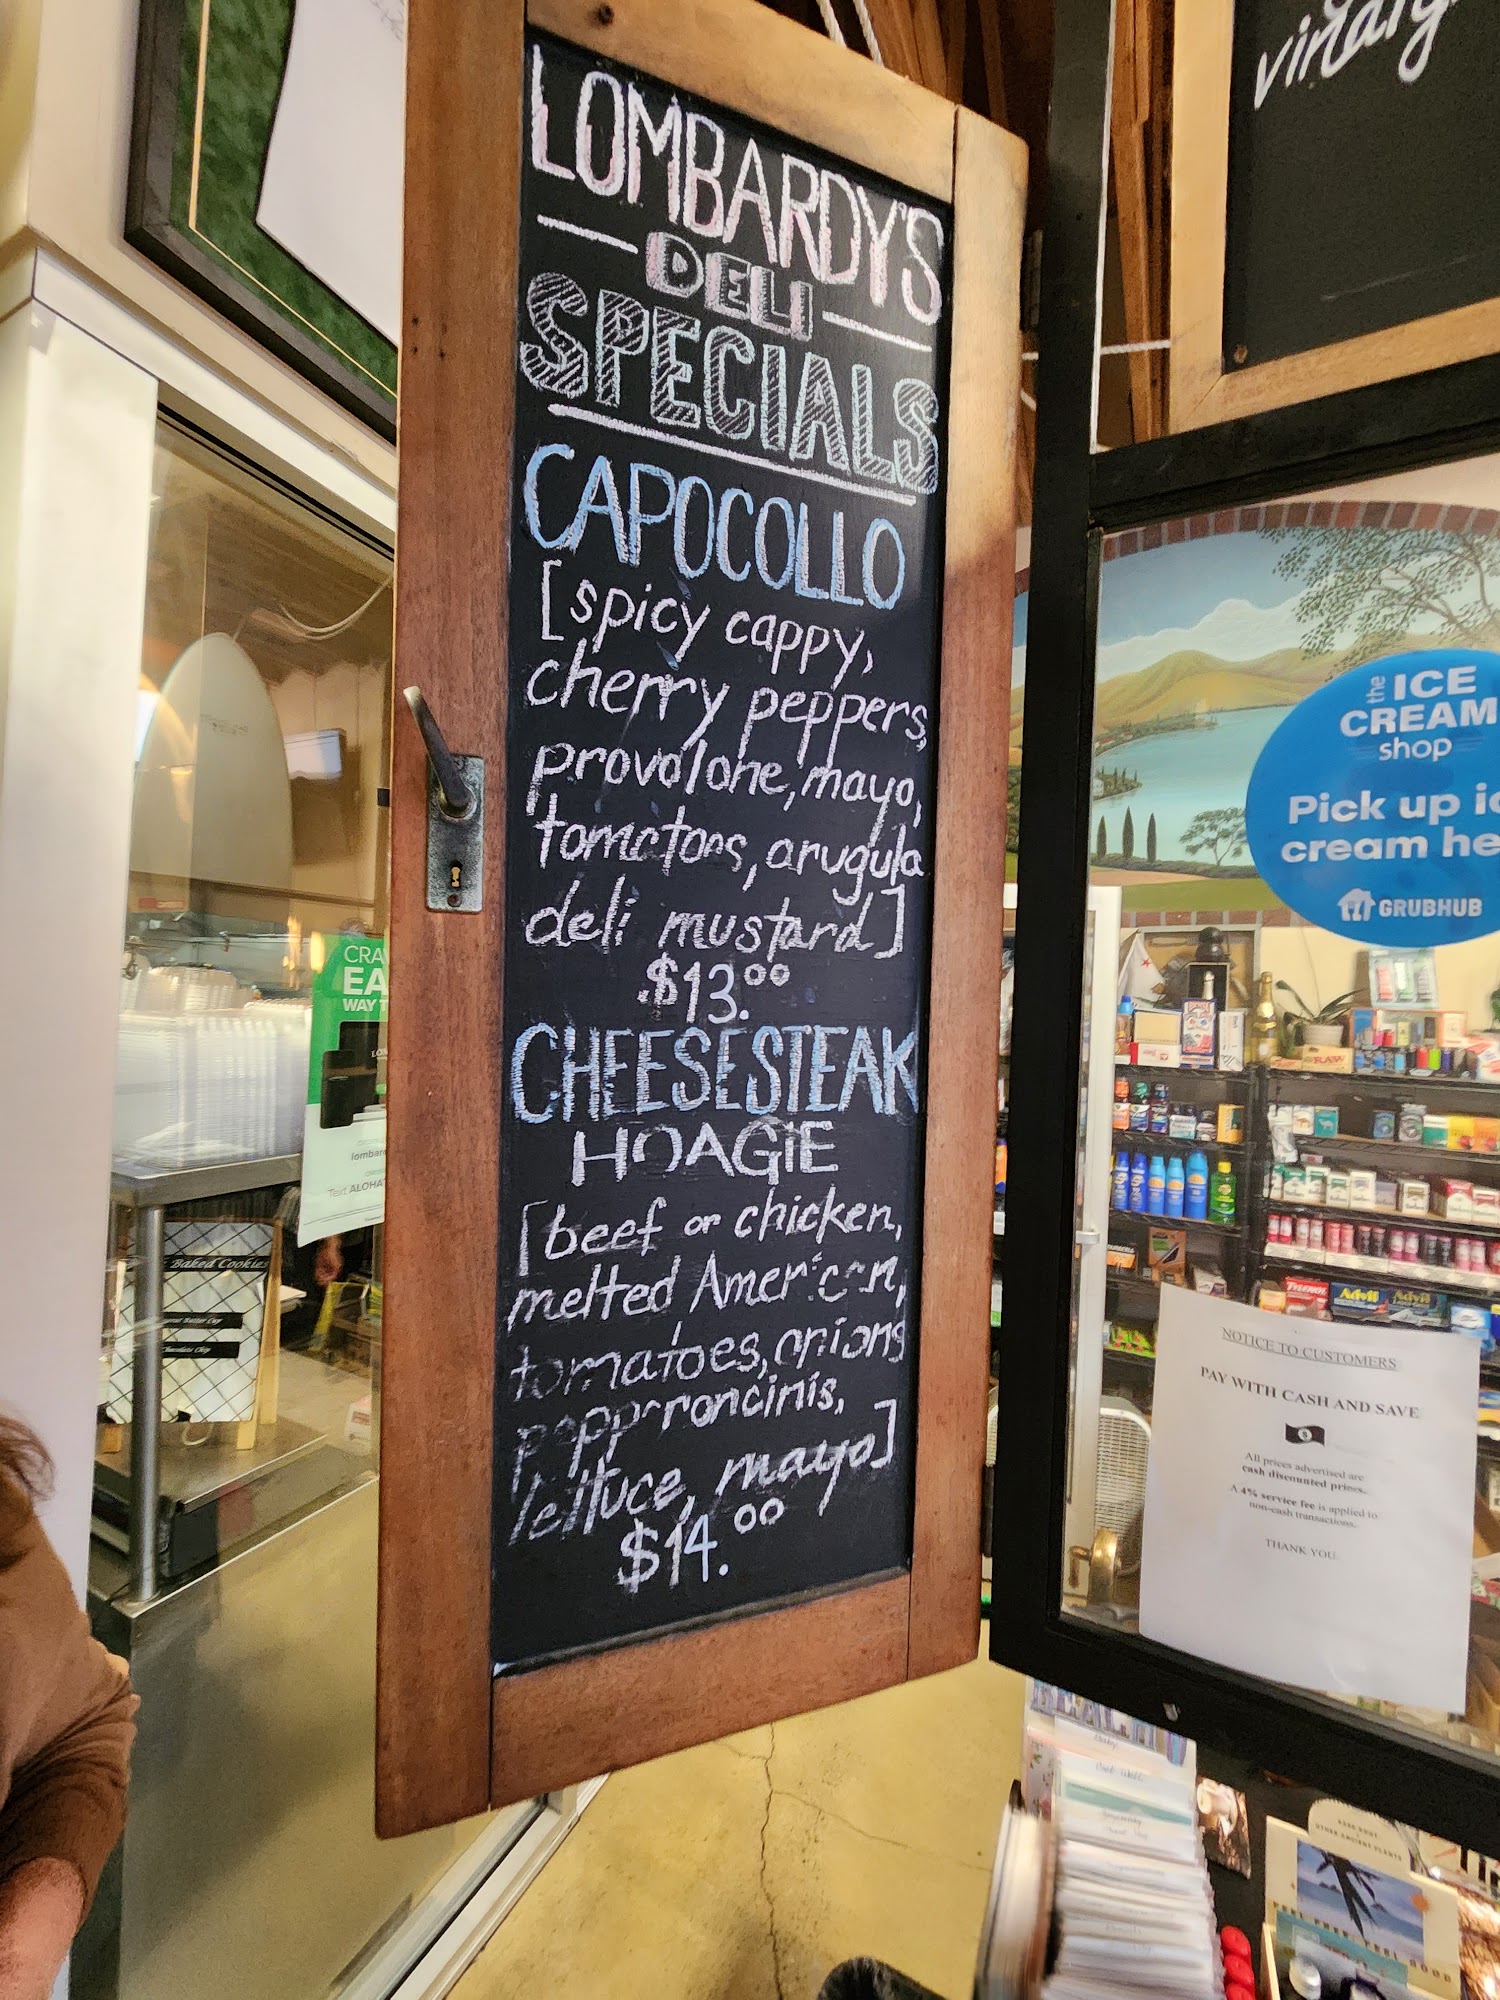 LOMBARDY'S
DELI
SPECIALS
CAPOCOLLO
[spicy cappy,
cherry peppers,
provolone, mayo,
tomatoes, arugula
deli mustard]
$13.00
CHEESESTEAK
HOAGIE
[beef or chicken,
melted American,
tomatoes, onions
pepperoncinis,
lettuce, mayo]
$14.00
the ICE
CREAM
shop
Pick up
cream
GRUBHUB
RAW
Advil
Advil
NOTICE TO CUSTOMERS
PAY WITH CASH AND SAVE
All prices advertised are
cash discounted prices.
A 4% service fee is applied to
non-cash transactions.
THANK YOU.
CRA
EA
WAY
Text ALOHA
Baked Cookies
Chocolate Chip